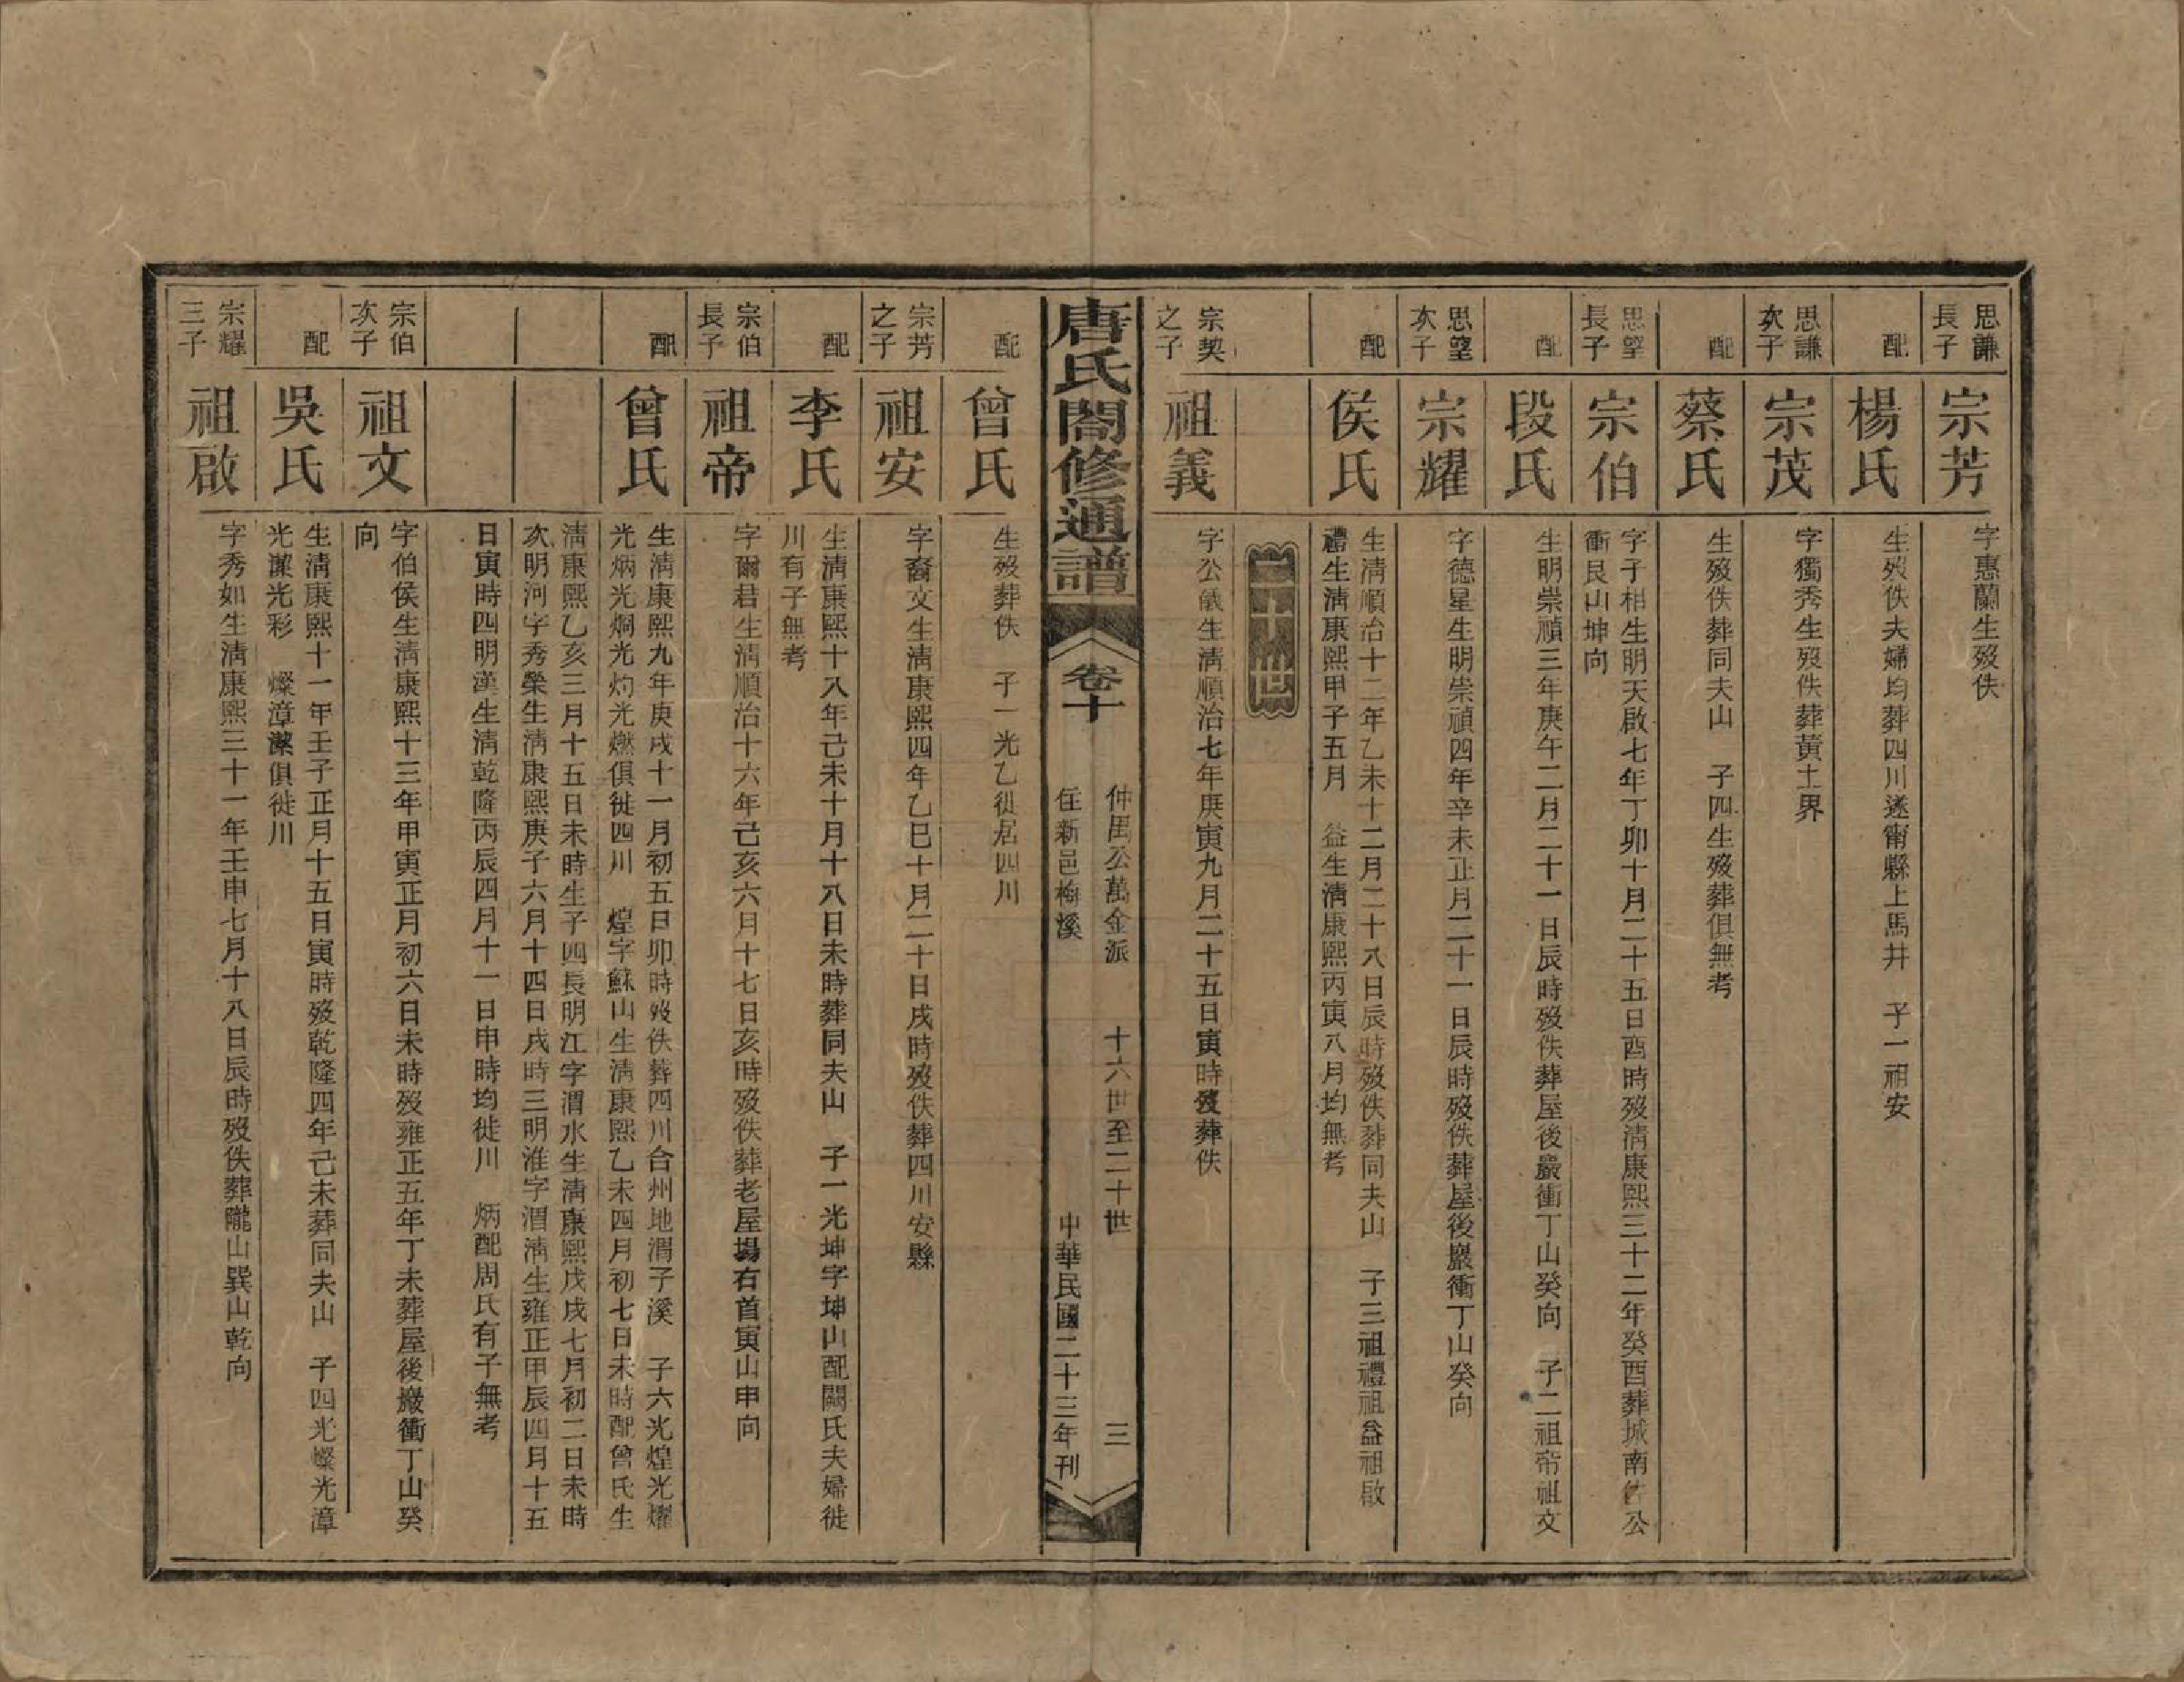 思謙長子
宗芳
字惠蘭生歿佚
配
楊氏
生歿佚夫婦均葬四川遂甯縣上馬井　子一祖安
思謙次子
宗茂
字獨秀生歿佚葬黃土界
配
蔡氏
生歿佚葬同夫山　子四生歿葬俱無考
思望長子
宗伯
字子相生明天啟七年丁卯十月二十五日酉時歿清康熙三十二年癸酉葬城南佐公
衝艮山坤向
配
段氏
生明崇禎三年庚午二月二十一日辰時歿佚葬屋後巖衝丁山癸向　子二祖帝祖文
思望次子
宗耀
字德星生明崇禎四年辛未正月二十一日辰時歿佚葬屋後巖衝丁山癸向
配
侯氏
生清順治十二年乙未十二月二十八日辰時歿佚葬同夫山　子三祖禮祖益祖啟
禮生清康熙甲子五月　益生清康熙丙寅八月均無考
二十世
宗契之子
祖義
字公儀生清順治七年庚寅九月二十五日寅時歿葬佚
唐氏閤修通譜
卷十
仲禺公萬金派　十六世至二十世　三
住新邑梅溪　中華民國二十三年刊
配
曾氏
生歿葬佚　子一光乙徙居四川
宗芳之子
祖安
字裔文生清康熙四年乙巳十月二十日戌時歿佚葬四川安縣
配
李氏
生清康熙十八年己未十月十八日未時葬同夫山　子一光坤字坤山配闕氏夫婦徙
川有子無考
宗伯長子
祖帝
字爾君生清順治十六年己亥六月十七日亥時歿佚葬老屋場右首寅山申向
配
曾氏
生清康熙九年庚戌十一月初五日卯時歿佚葬四川合州地渭子溪　子六光煌光燿
光炳光炯光灼光燃俱徙四川　煌字蘇山生清康熙乙未四月初七日未時配曾氏生
清康熙乙亥三月十五日未時生子四長明江字渭水生清康熙戊戌七月初二日未時
次明河字秀榮生清康熙庚子六月十四日戌時三明淮字渭清生雍正甲辰四月十五
日寅時四明漢生清乾隆丙辰四月十一日申時均徙川　炳配周氏有子無考
宗伯次子
祖文
字伯侯生清康熙十三年甲寅正月初六日未時歿雍正五年丁未葬屋後巖衝丁山癸
向
配
吳氏
生清康熙十一年壬子正月十五日寅時歿乾隆四年己未葬同夫山　子四光燦光漳
光潔光彩　燦漳潔俱徙川
宗耀三子
祖啟
字秀如生清康熙三十一年壬申七月十八日辰時歿佚葬隴山巽山乾向